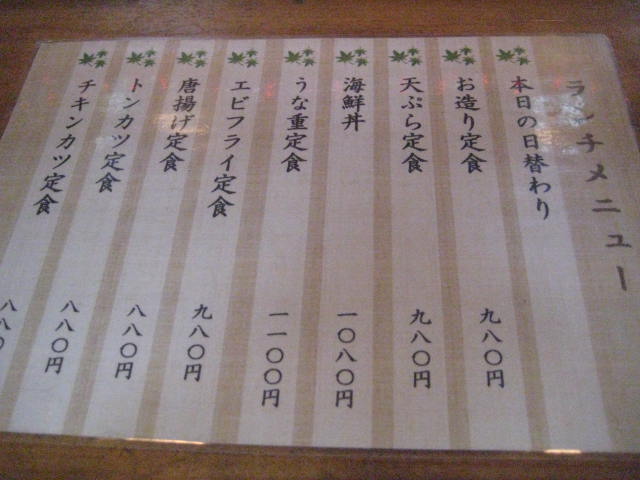 ランチメニュー
本日の日替わり
お造り定食 九八〇円
天ぷら定食 九八〇円
海鮮丼 一〇八〇円
うな重定食 一一〇〇円
エビフライ定食 九八〇円
唐揚げ定食 八八〇円
トンカツ定食 八八〇円
チキンカツ定食 八八〇